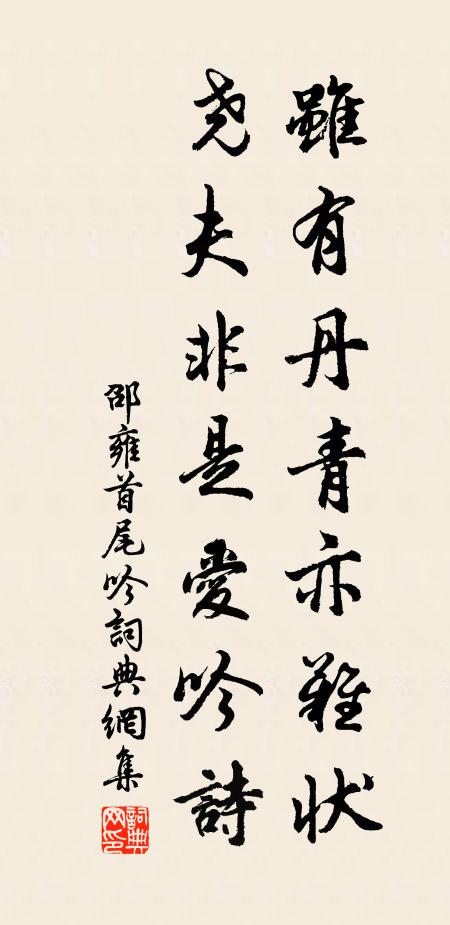 雖有丹青亦難狀
尭夫非是愛吟詩
邵雍首尾吟詞典網集
詞典網印